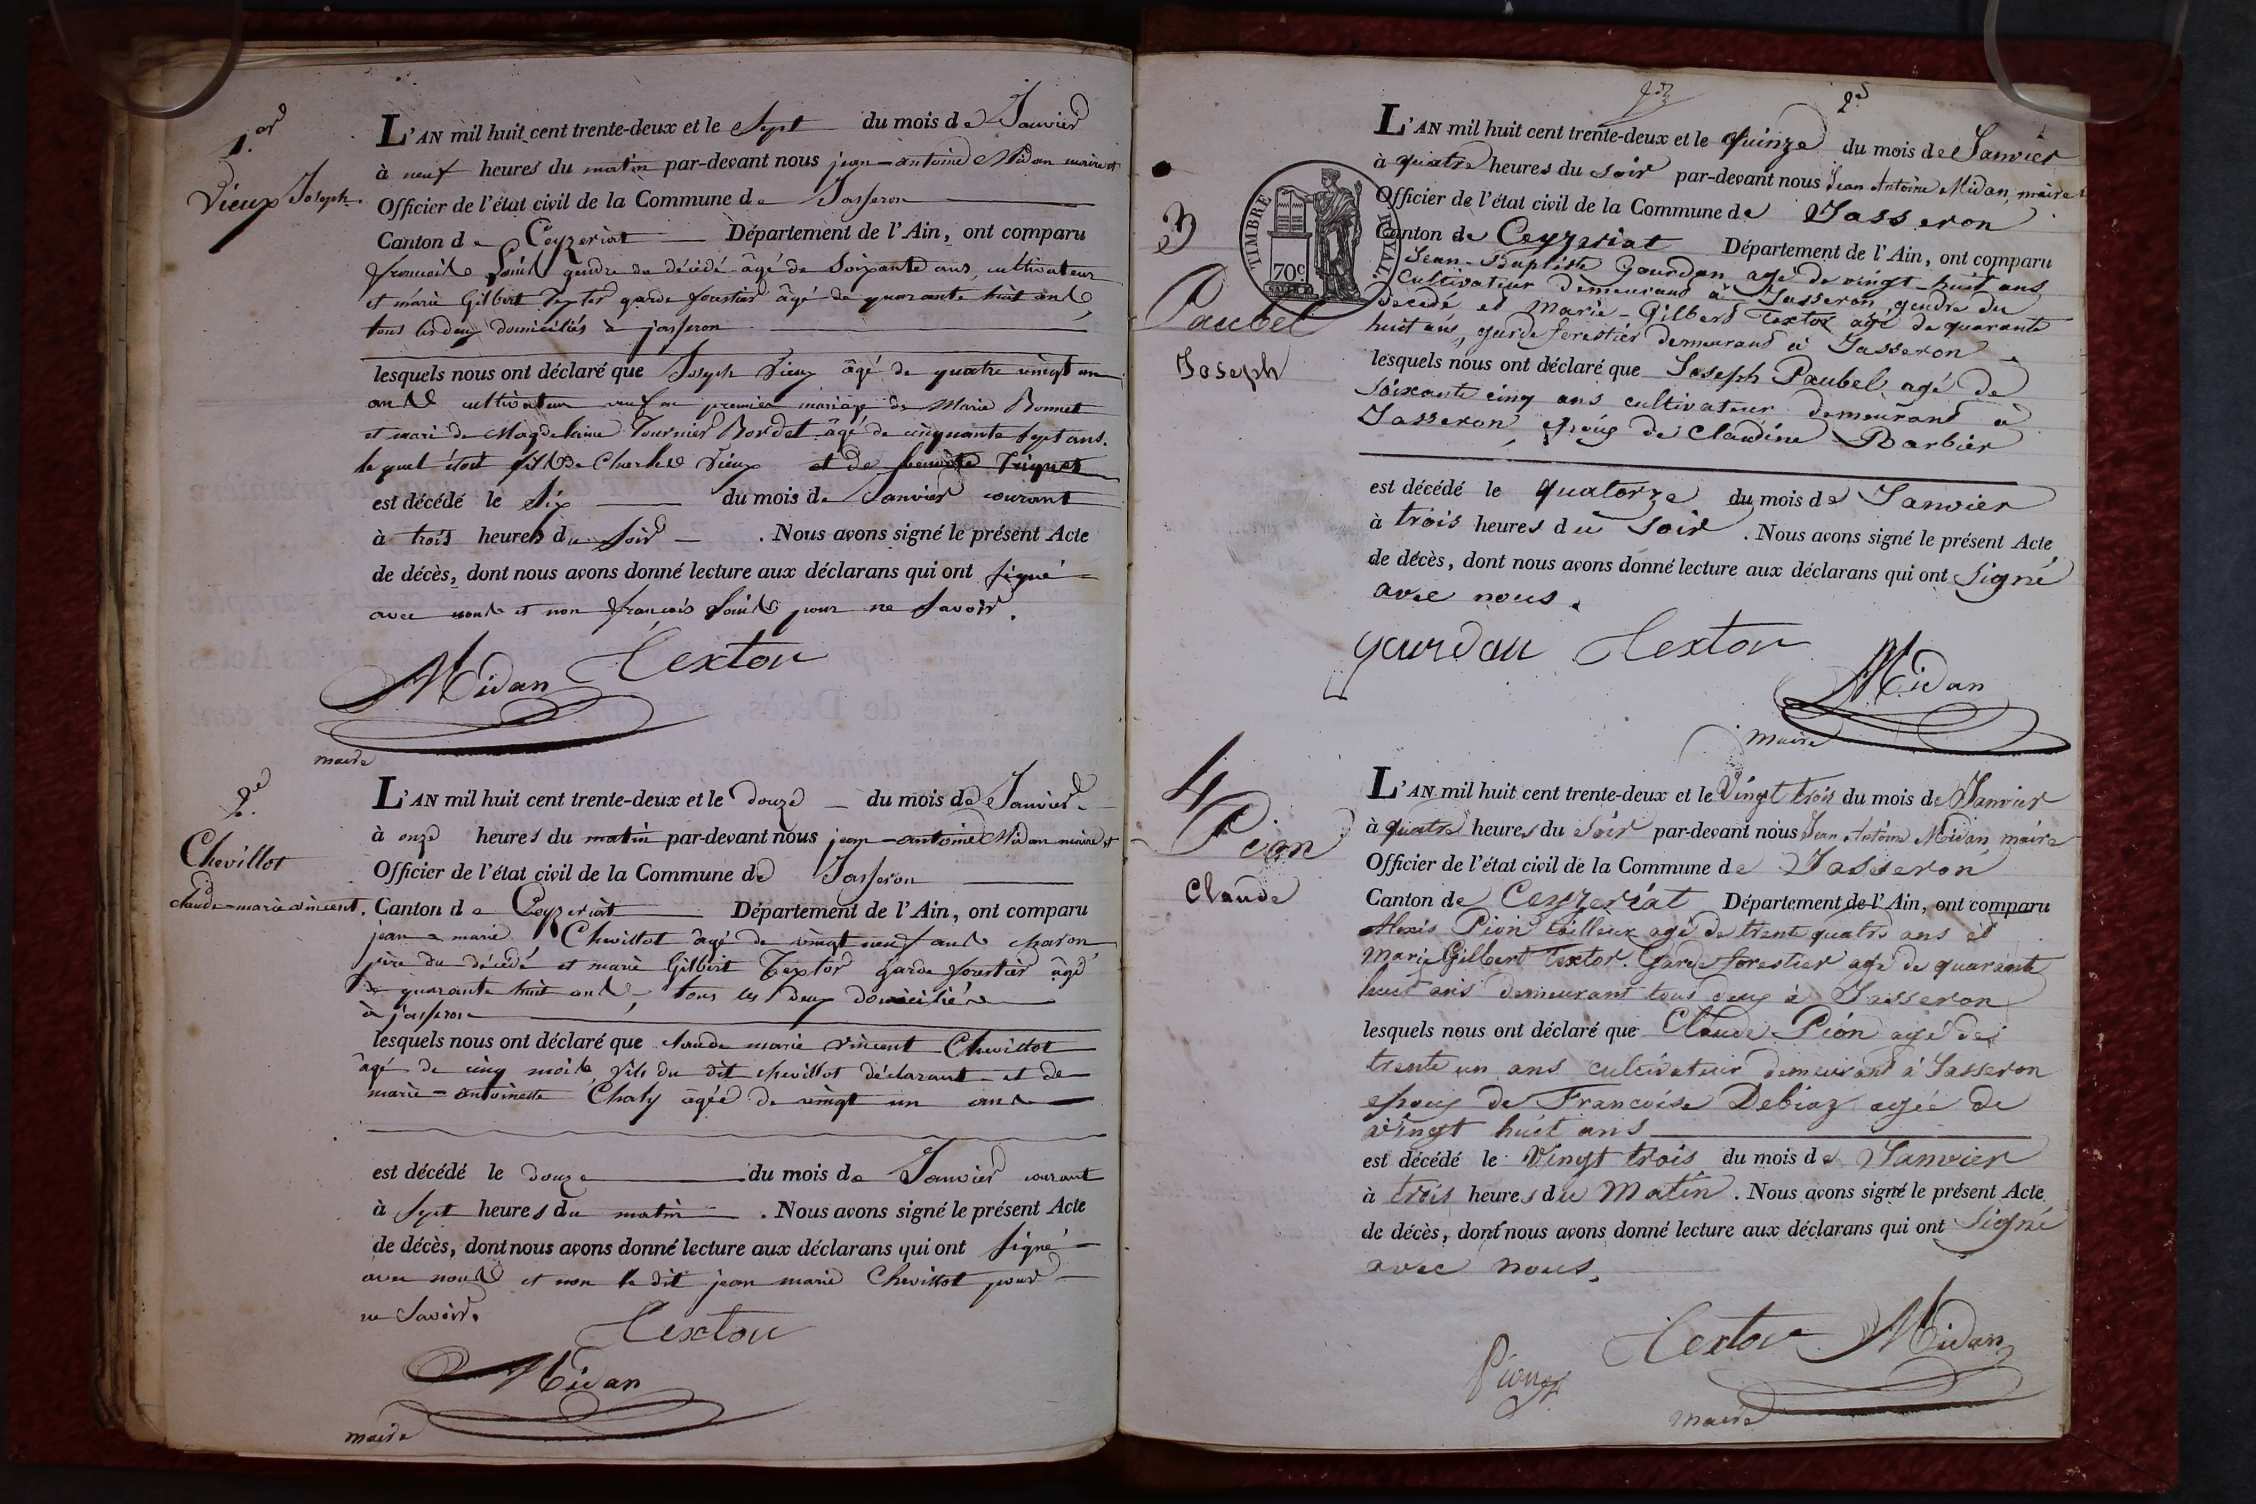 1.er
Vieux Joseph.
L'AN mil huit cent trente-deux et le sept du mois de Janvier
à neuf heures du matin par-devant nous jean-antoine Midan maire et
Officier de l'état civil de la Commune de Jasseron
Canton de Ceyzeriat Département de l'Ain, ont comparu
gendre du décédé âgé de soixante ans, cultivateur
et marie Gilbert Textor garde forestier âgé de quarante huit ans
tous les deux domiciliés à jasseron
lesquels nous ont déclaré que Joseph Vieux âgé de quatre vingt un
ans cultivateur veuf en premier mariage de Marie Bonnet
et mari de Magdelaine Tournier Bordet âgé de cinquante sept ans.
le quel étoit fils de Charles Vieux et de
est décédé le six du mois de Janvier courant
à trois heures du soir. Nous avons signé le présent Acte
de décès, dont nous avons donné lecture aux déclarans qui ont signé
avec nous et non françois pour ne savoir.
Midan Textor
maire
2.e
Chevillot
claude-marie vincent.
L'AN mil huit cent trente-deux et le douze du mois de Janvier
à onze heures du matin par-devant nous jean-antoine Midan maire et
Officier de l'état civil de la Commune de Jasseron
Canton de Ceyzeriat Département de l'Ain, ont comparu
jean marie Chevillot âgé de vingt neuf ans charon
père du décédé et marie Gilbert Textor garde forestier âgé
de quarante huit ans, tous les deux domiciliés
à jasseron
lesquels nous ont déclaré que claude marie vincent Chevillot
âgé de cinq mois fils du dit chevillot déclarant et de
marie-antoinette Chaty âgée de vingt un ans
est décédé le douze du mois de Janvier courant
à sept heures du matin. Nous avons signé le présent Acte
de décès, dont nous avons donné lecture aux déclarans qui ont signé
avec nous et non le dit jean marie Chevillot pour
ne savoir.
Textor
Midan
maire
2e
3
Paubel
Joseph
TIMBRE ROYAL.
70c
L'AN mil huit cent trente-deux et le quinze du mois de Janvier
à quatre heures du soir par-devant nous Jean Antoine Midan, maire
Officier de l'état civil de la Commune de Jasseron
Canton de Ceyzeriat Département de l'Ain, ont comparu
Jean-Baptiste Gourdan agé de vingt-huit ans
Cultivateur demeurant à Jasseron, gendre du
décédé et Marie-Gilbert Textor agé de quarante
huit ans, garde forestier demeurant à Jasseron
lesquels nous ont déclaré que Joseph Paubel agé de
soixante cinq ans cultivateur demeurant à
Jasseron, époux de Claudine Barbier
est décédé le quatorze du mois de Janvier
à trois heures du soir. Nous avons signé le présent Acte
de décès, dont nous avons donné lecture aux déclarans qui ont signé
avec nous.
gourdan Textor
Midan
maire
4
Pion
Claude
L'AN mil huit cent trente-deux et le Vingt trois du mois de Janvier
à quatre heures du soir par-devant nous Jean Antoine Midan maire
Officier de l'état civil de la Commune de Jasseron
Canton de Ceyzeriat Département de l'Ain, ont comparu
Alexis Pion tailleur agé de trente quatre ans et
Marie Gilbert Textor Garde forestier agé de quarante
huit ans demeurant tous deux à Jasseron
lesquels nous ont déclaré que Claude Pion agé de
trente un ans cultivateur demeurant à Jasseron
epoux de Francoise Debiaz agée de
vingt huit ans
est décédé le vingt trois du mois de Janvier
à trois heures du Matin. Nous avons signé le présent Acte
de décès, dont nous avons donné lecture aux déclarans qui ont signé
avec nous.
Textor Midan
Pion
maire